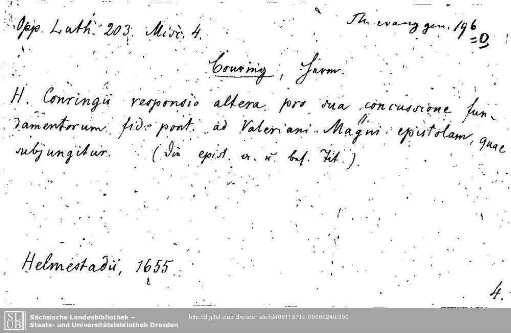 Opp. Luth. 203. Misc. 4.
Th. evang. gen. 196
=0
Conring, Herm.
H. Conringii responsio altera pro sua concussione fun-
damentorum fid. pont. ad Valeriani Magni epistolam, quae
subjungitur. (Die epist. m. u. bes. Tit.)
Helmestadii, 1655
4.
Sächsische Landesbibliothek –
Staats- und Universitätsbibliothek Dresden